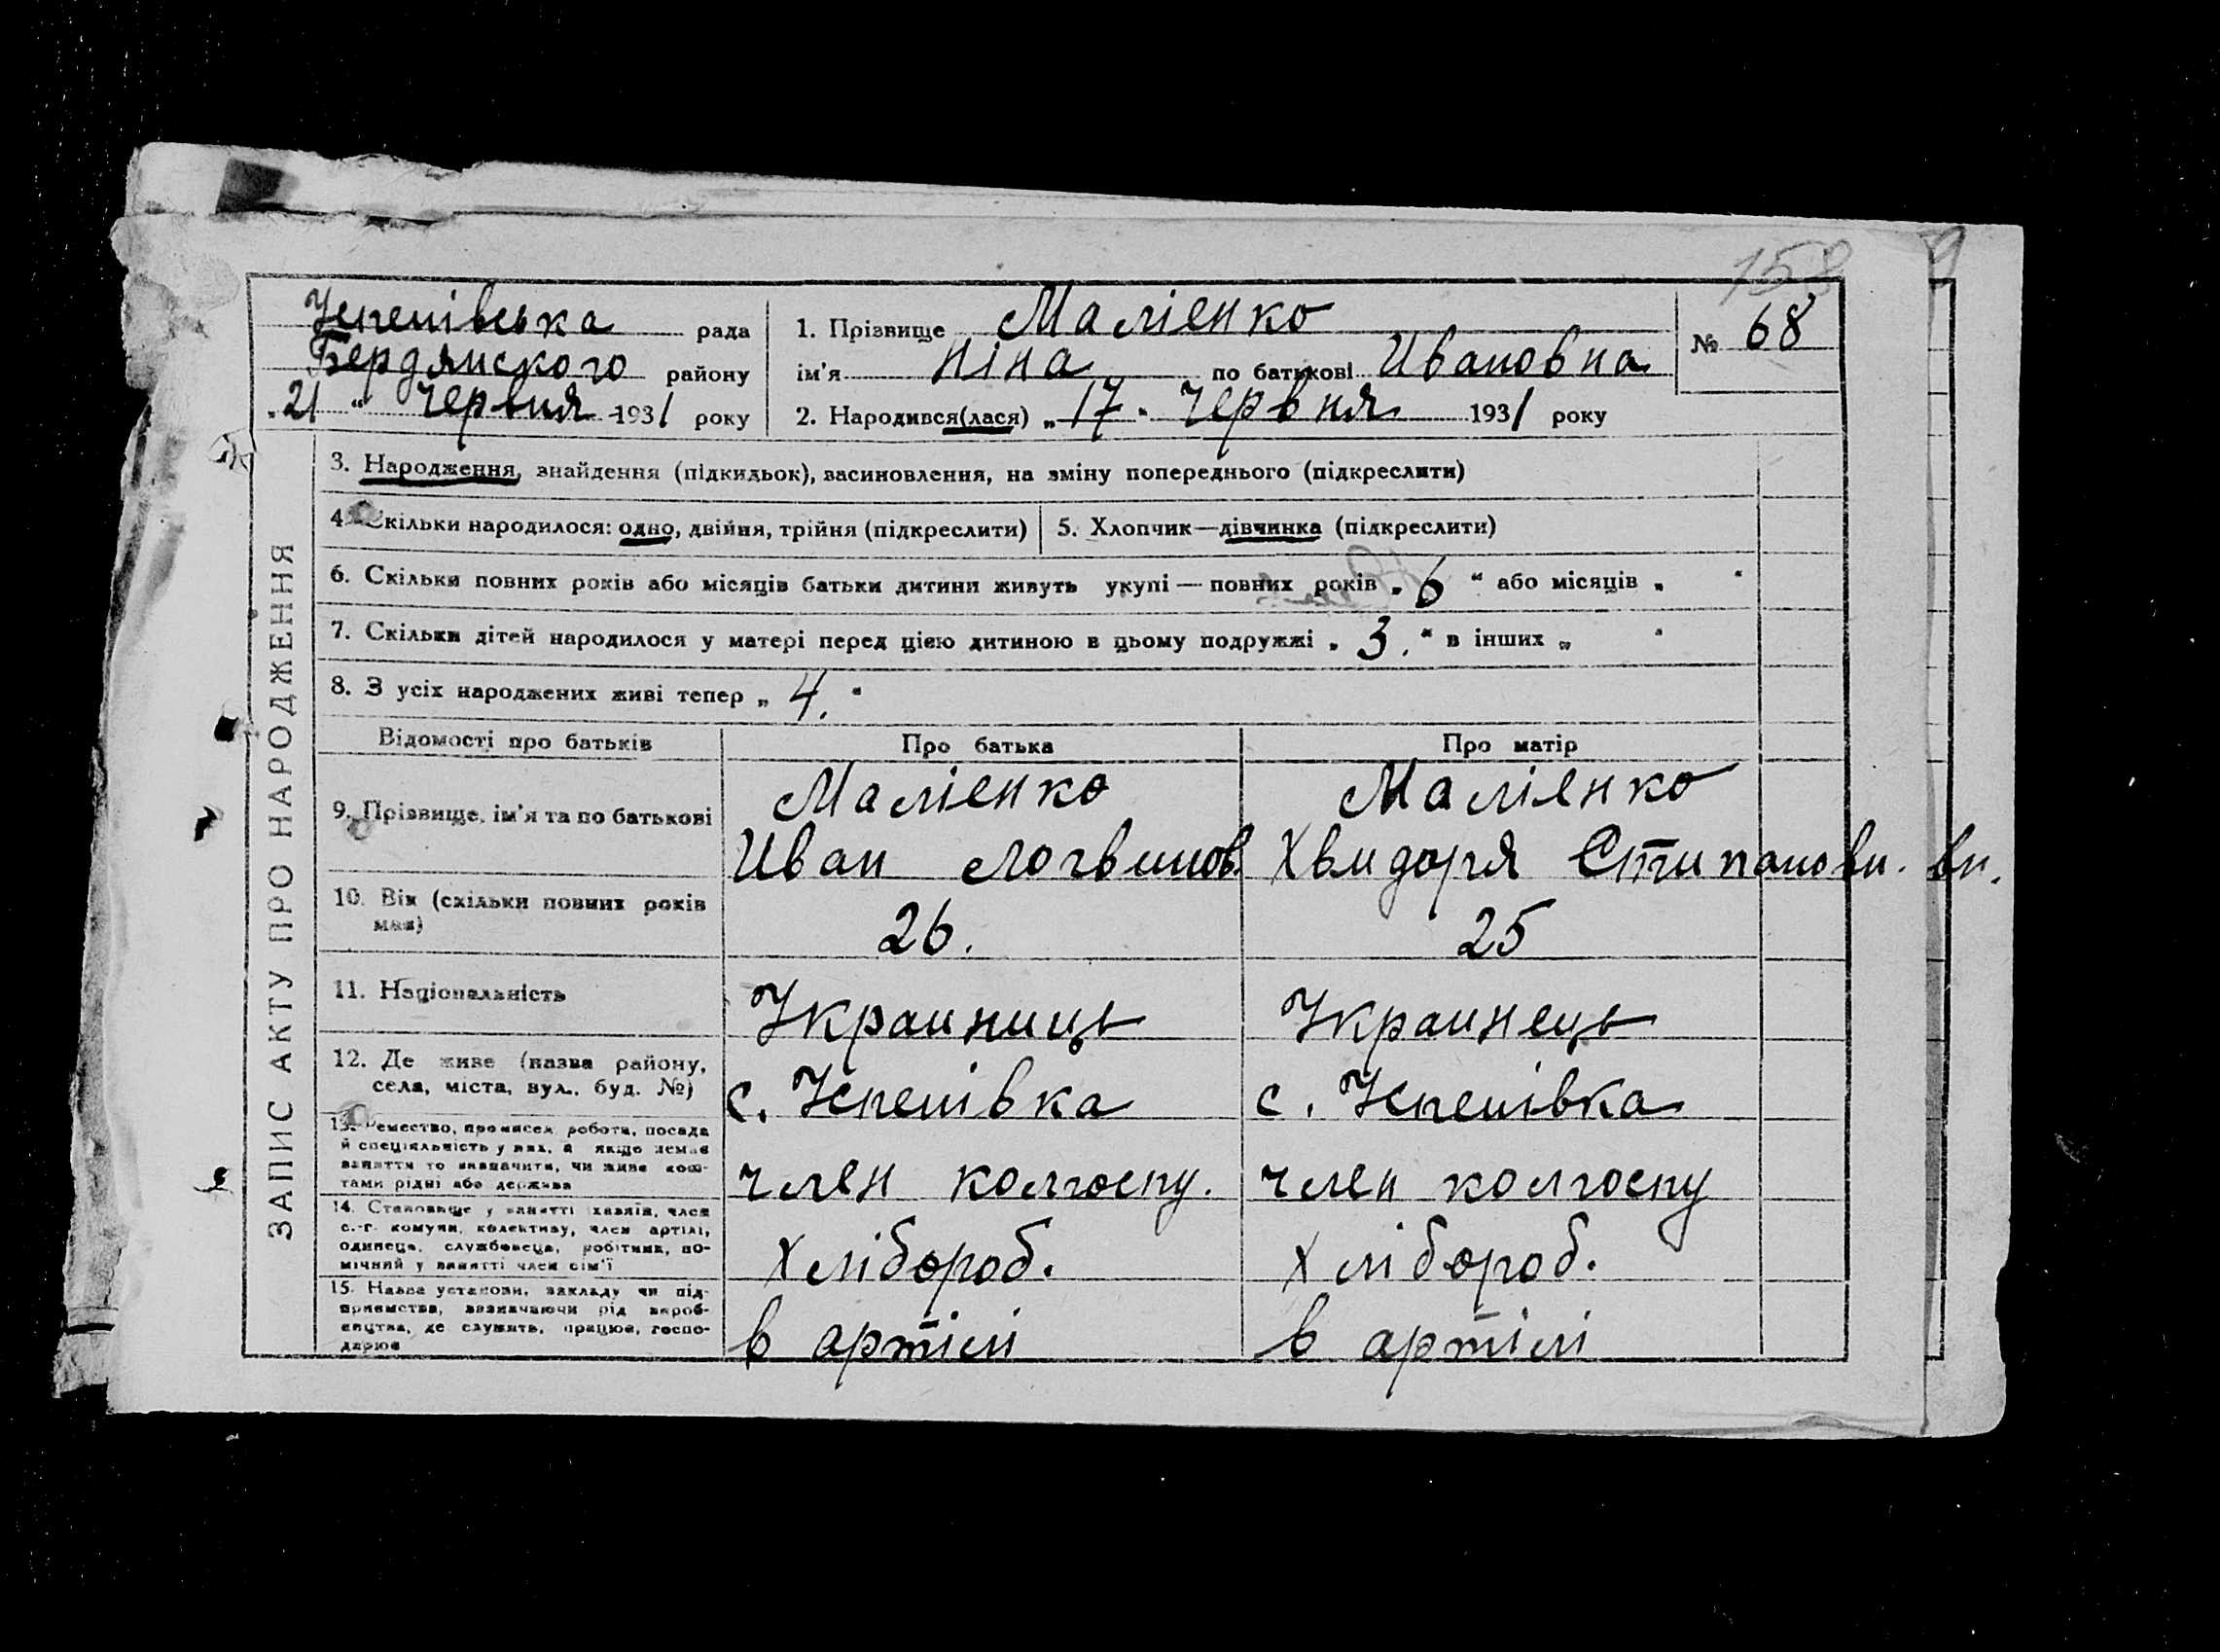 158
Успенівська рада
Бердянского району
„21“ Червня 1931 року
1. Прізвище Маліенко
ім'я Ніна по батькові Ивановна
№ 68
2. Народився(лася) „17“ Червня 1931 року
ЗАПИС АКТУ ПРО НАРОДЖЕННЯ
3. Народження, знайдення (підкидьок), засиновлення, на зміну попереднього (підкреслити)
4. Скільки народилося: одно, двійня, трійня (підкреслити)
5. Хлопчик—дівчинка (підкреслити)
6. Скільки повних років або місяців батьки дитини живуть укупі — повних років „6“ або місяців „ “
7. Скільки дітей народилося у матері перед цією дитиною в цьому подружжі „3.“ в інших „ “
8. З усіх народжених живі тепер „4.“
Відомості про батьків Про батька Про матір
9. Прізвище, ім'я та по батькові
Маліенко
Иван Логвинов.
Маліенко
Хвидоря Стипановн. вн.
10. Вік (скільки повних років
має)
26.
25
11. Національність
Украиниць
Украинець
12. Де живе (назва району,
села, міста, вул., буд. №)
с. Успенівка
с. Успенівка
13. Ремество, промисел, робота, посада
й спеціяльність у них, а якщо немає
заняття то визначити, чи живе кош-
тами рідні або держава
член колгоспу.
член колгоспу
14. Становище у занятті хазяїн, член
с.-г. комуни, колективу, член артілі,
одинець, службовець, робітник, по-
мічний у занятті член сім'ї
Хлібороб.
Хлібороб.
15. Назва установи, закладу чи під-
приємства, зазначаючи рід вироб-
ництва, де служить, працює, госпо-
дарює
в артілі
в артілі